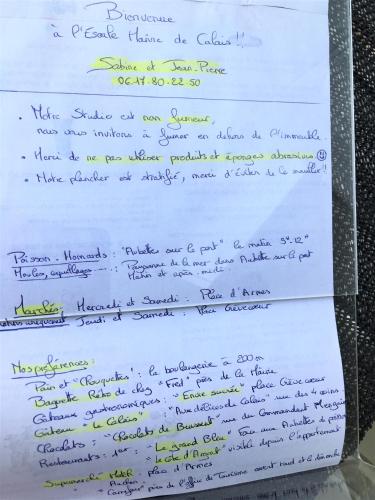 Bienvenue
à l'Escale Marine de Calais !!
Sabine et Jean-Pierre
06.17.80.22.50
• Notre Studio est non fumeur,
nous vous invitons à fumer en dehors de l'immeuble.
• Merci de ne pas utiliser produits et éponges abrasives
• Notre plancher est stratifié, merci d'éviter de le mouiller !!
Poisson. Homards : "Aubettes sur le port" le matin 9h-12h
Moules, coquillages : Paysanne de la mer dans Aubette sur le port
Matin et après-midi.
Marchés : Mercredi et Samedi : Place d'Armes
Jeudi et Samedi : Place Crèvecœur
Nos préférences :
Pain et "Chouquettes" : la boulangerie à 200 m
Baguette Rétro de chez "Fred" près de la Mairie
Gâteaux gastronomiques : "Envie sucrée" place Crèvecœur
Gâteau "Le Calais" : "Aux délices du Calais" rue des 4 coins
Chocolats : "Chocolats de Beussent" rue du Commandant Mengin
Restaurants : 1er : "Le grand Bleu" face aux Aubettes à poissons
"La Côte d'Argent" visible depuis l'appartement
Supermarché Match : place d'Armes
"Carrefour" près de l'office de Tourisme ouvert lundi et le dimanche